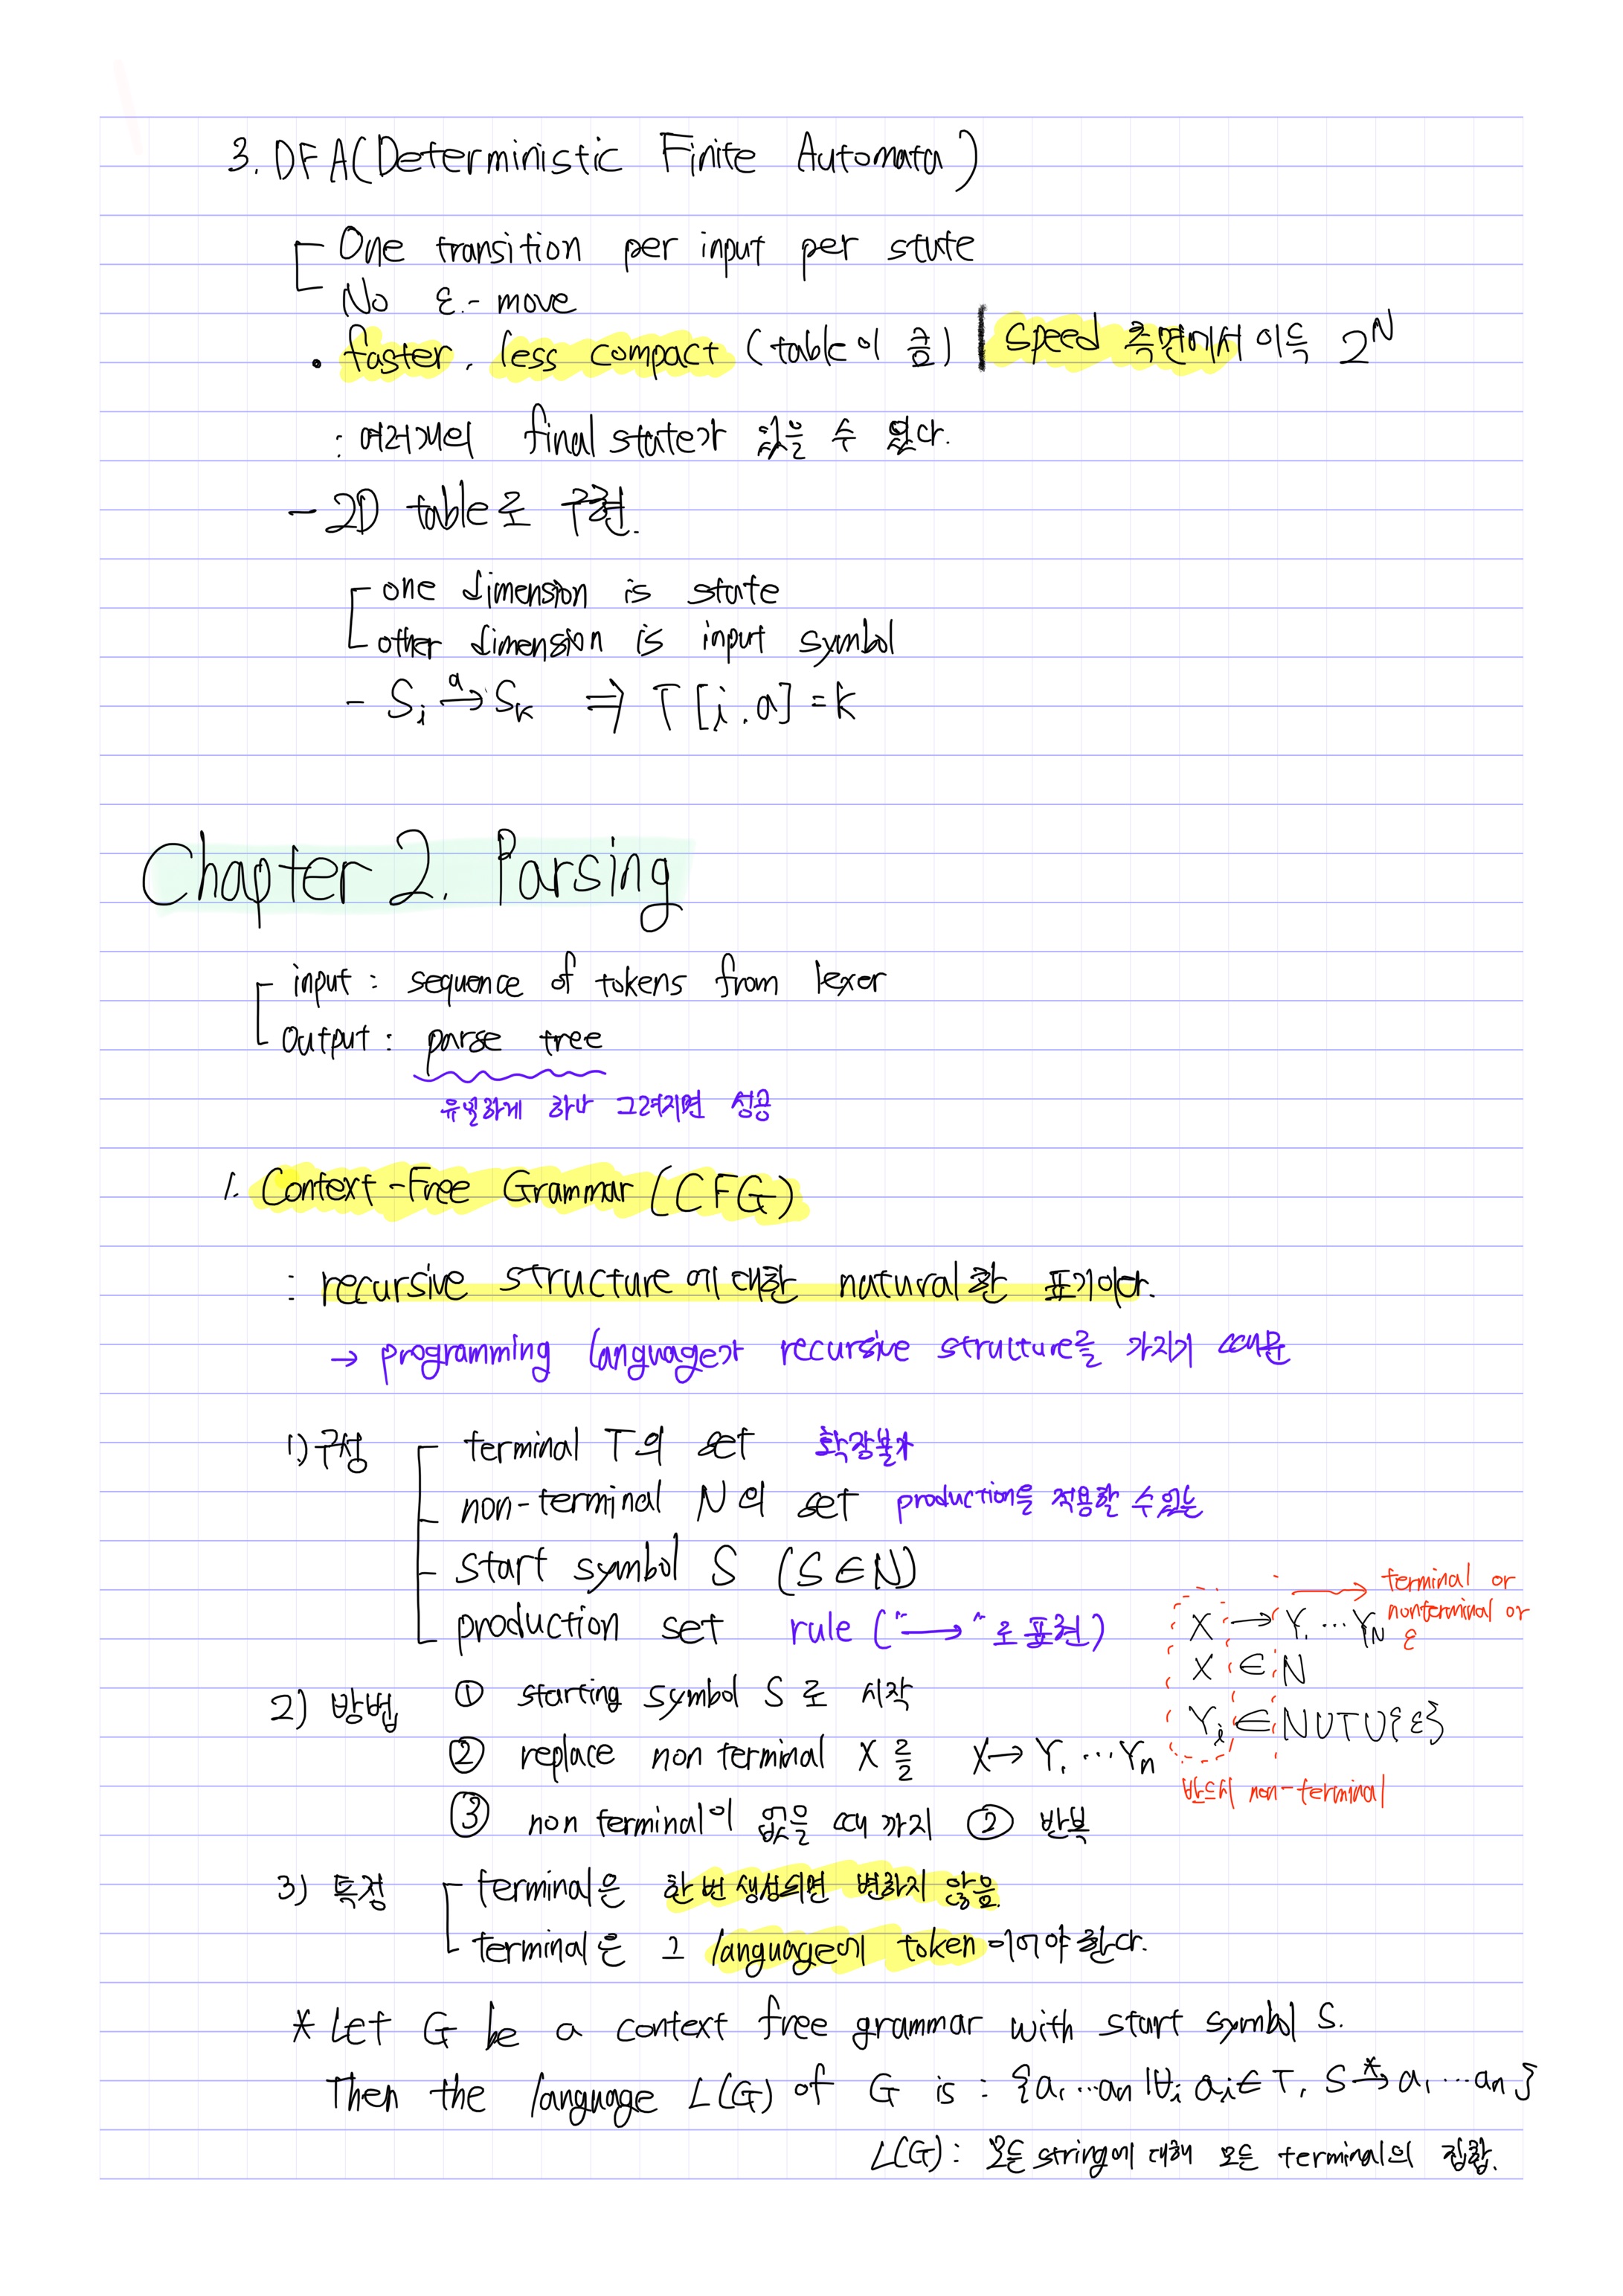 3. DFA(Deterministic Finite Automata)
One transition per input per state
No ε - move
• faster, less compact (table이 큼) | speed 측면에서 이득 2^N
: 여러개의 final state가 있을 수 있다.
- 2D table로 구현.
one dimension is state
other dimension is input symbol
- Si →a Sk ⇒ T[i.a] = k
Chapter 2. Parsing
input : sequence of tokens from lexer
Output : parse tree
유일하게 하나 그려지면 성공
1. Context-Free Grammar (CFG)
: recursive structure에 대한 natural한 표기이다.
→ programming language가 recursive structure를 가지기 때문
1) 구성
terminal T의 set 확장불가
non-terminal N의 set production을 적용할 수 있는
start symbol S (S∈N)
production set rule ("→"로 표현)
→ terminal or nonterminal or ε
X → Y1 ... YN
X ∈ N
Yi ∈ N∪T∪{ε}
반드시 non-terminal
2) 방법
① starting symbol S로 시작
② replace non terminal X를 X→Y1 ... Yn
③ non terminal이 없을 때 까지 ② 반복
3) 특징
terminal은 한번 생성되면 변하지 않음.
terminal은 그 language에 token이어야 한다.
* Let G be a context free grammar with start symbol S.
Then the language L(G) of G is : {a1 ... an | ∀i ai∈T, S →* a1 ... an}
L(G) : 모든 string에 대해 모든 terminal의 집합.